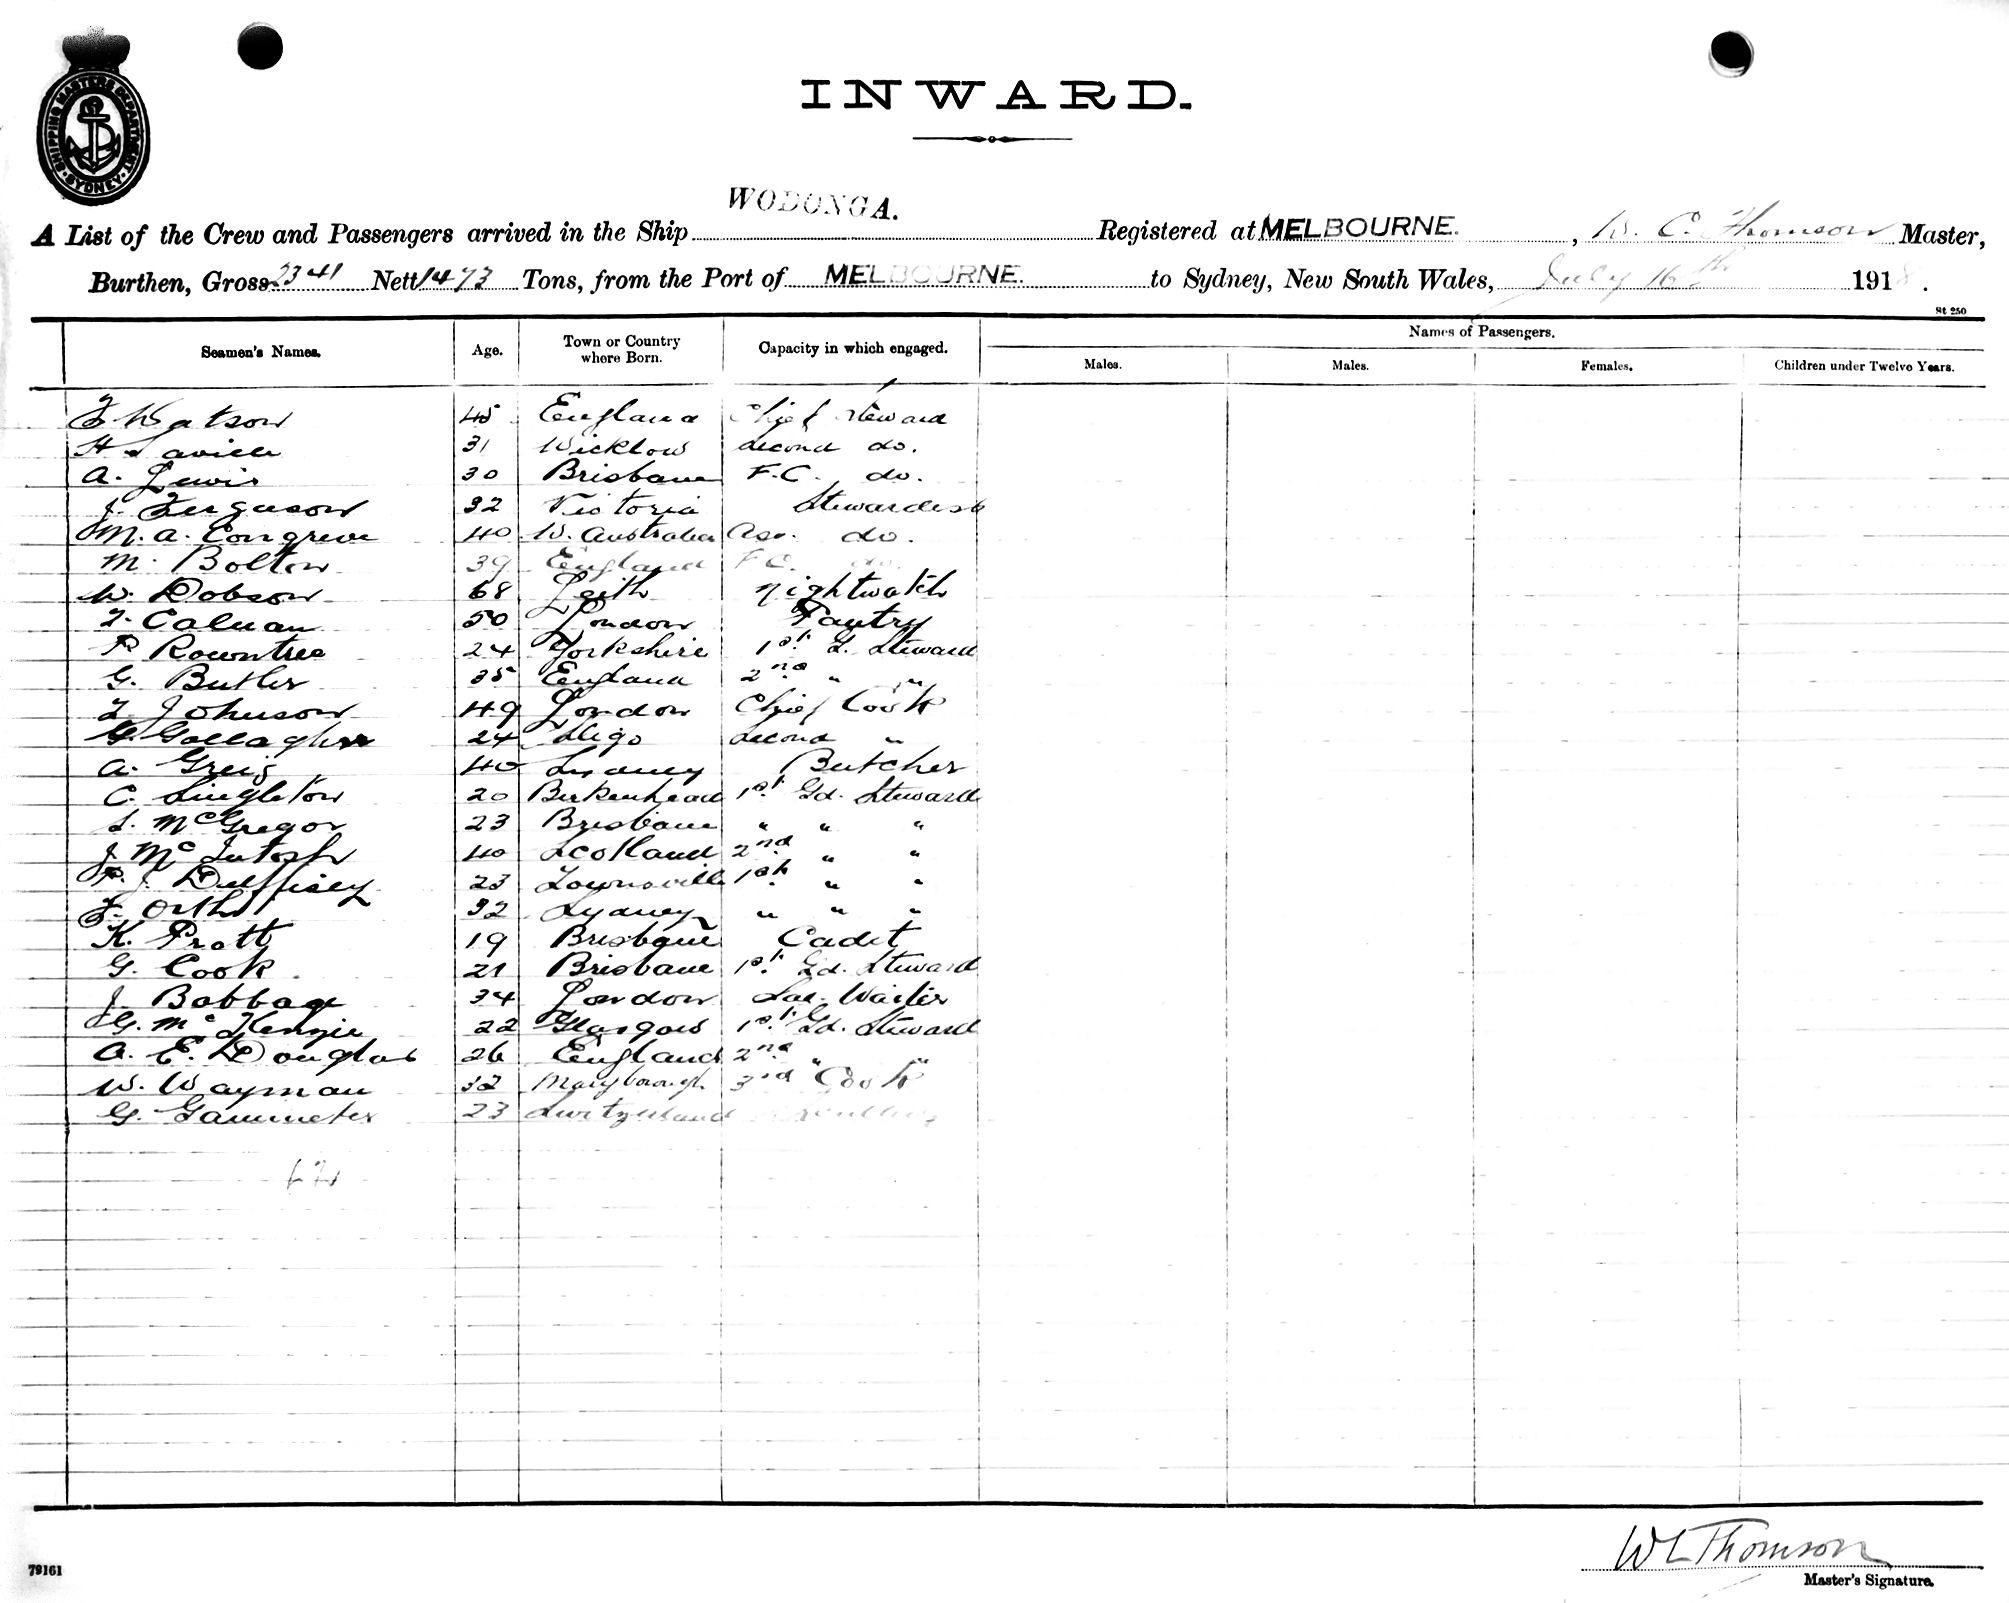 SHIPPING MASTERS DEPARTMENT
SYDNEY
INWARD.
WODONGA.
A List of the Crew and Passengers arrived in the Ship Registered at MELBOURNE. , W. C. Thomson Master,
Burthen, Gross 2341 Nett 1473 Tons, from the Port of MELBOURNE. to Sydney, New South Wales, July 16th 1918.
St 250
Seamen's Names. Age. Town or Country where Born. Capacity in which engaged. Names of Passengers.
Males. Males. Females. Children under Twelve Years.
F. Watson 45 England Chief Steward
H 31 Wicklow Second do.
A. Lewis 30 Brisbane F.C. do.
J. Ferguson 32 Victoria Stewardess
M. A. Congreve 40 W. Australia Ass. do.
M. Bolton 39 England F.C. do.
W. Dobson 68 Leith Nightwatch
T. Colman 50 London Pantry
P. Rowntree 24 Yorkshire 1st S. Steward
G. Butler 35 England 2nd " "
T. Johnson 49 London Chief Cook
G. Gallagher 24 Sligo Second "
A. Greig 40 Sydney Butcher
C. Singleton 20 Birkenhead 1st Gd. Steward
S. McGregor 23 Brisbane " " "
J. McIntosh 40 Scotland 2nd " "
P. J. 23 Townsville 1st " "
F. Orth 32 Sydney " " "
K. Pratt 19 Brisbane Cadet
G. Cook 21 Brisbane 1st Gd. Steward
J. Babbage 34 London Sal. Waiter
G. McKenzie 22 Glasgow 1st Gd. Steward
A. E. Douglas 26 England 2nd " "
W. Wayman 32 Maryborough 3rd Cook
G. Gammeter 23 Switzerland
W C Thomson
79161
Master's Signature.